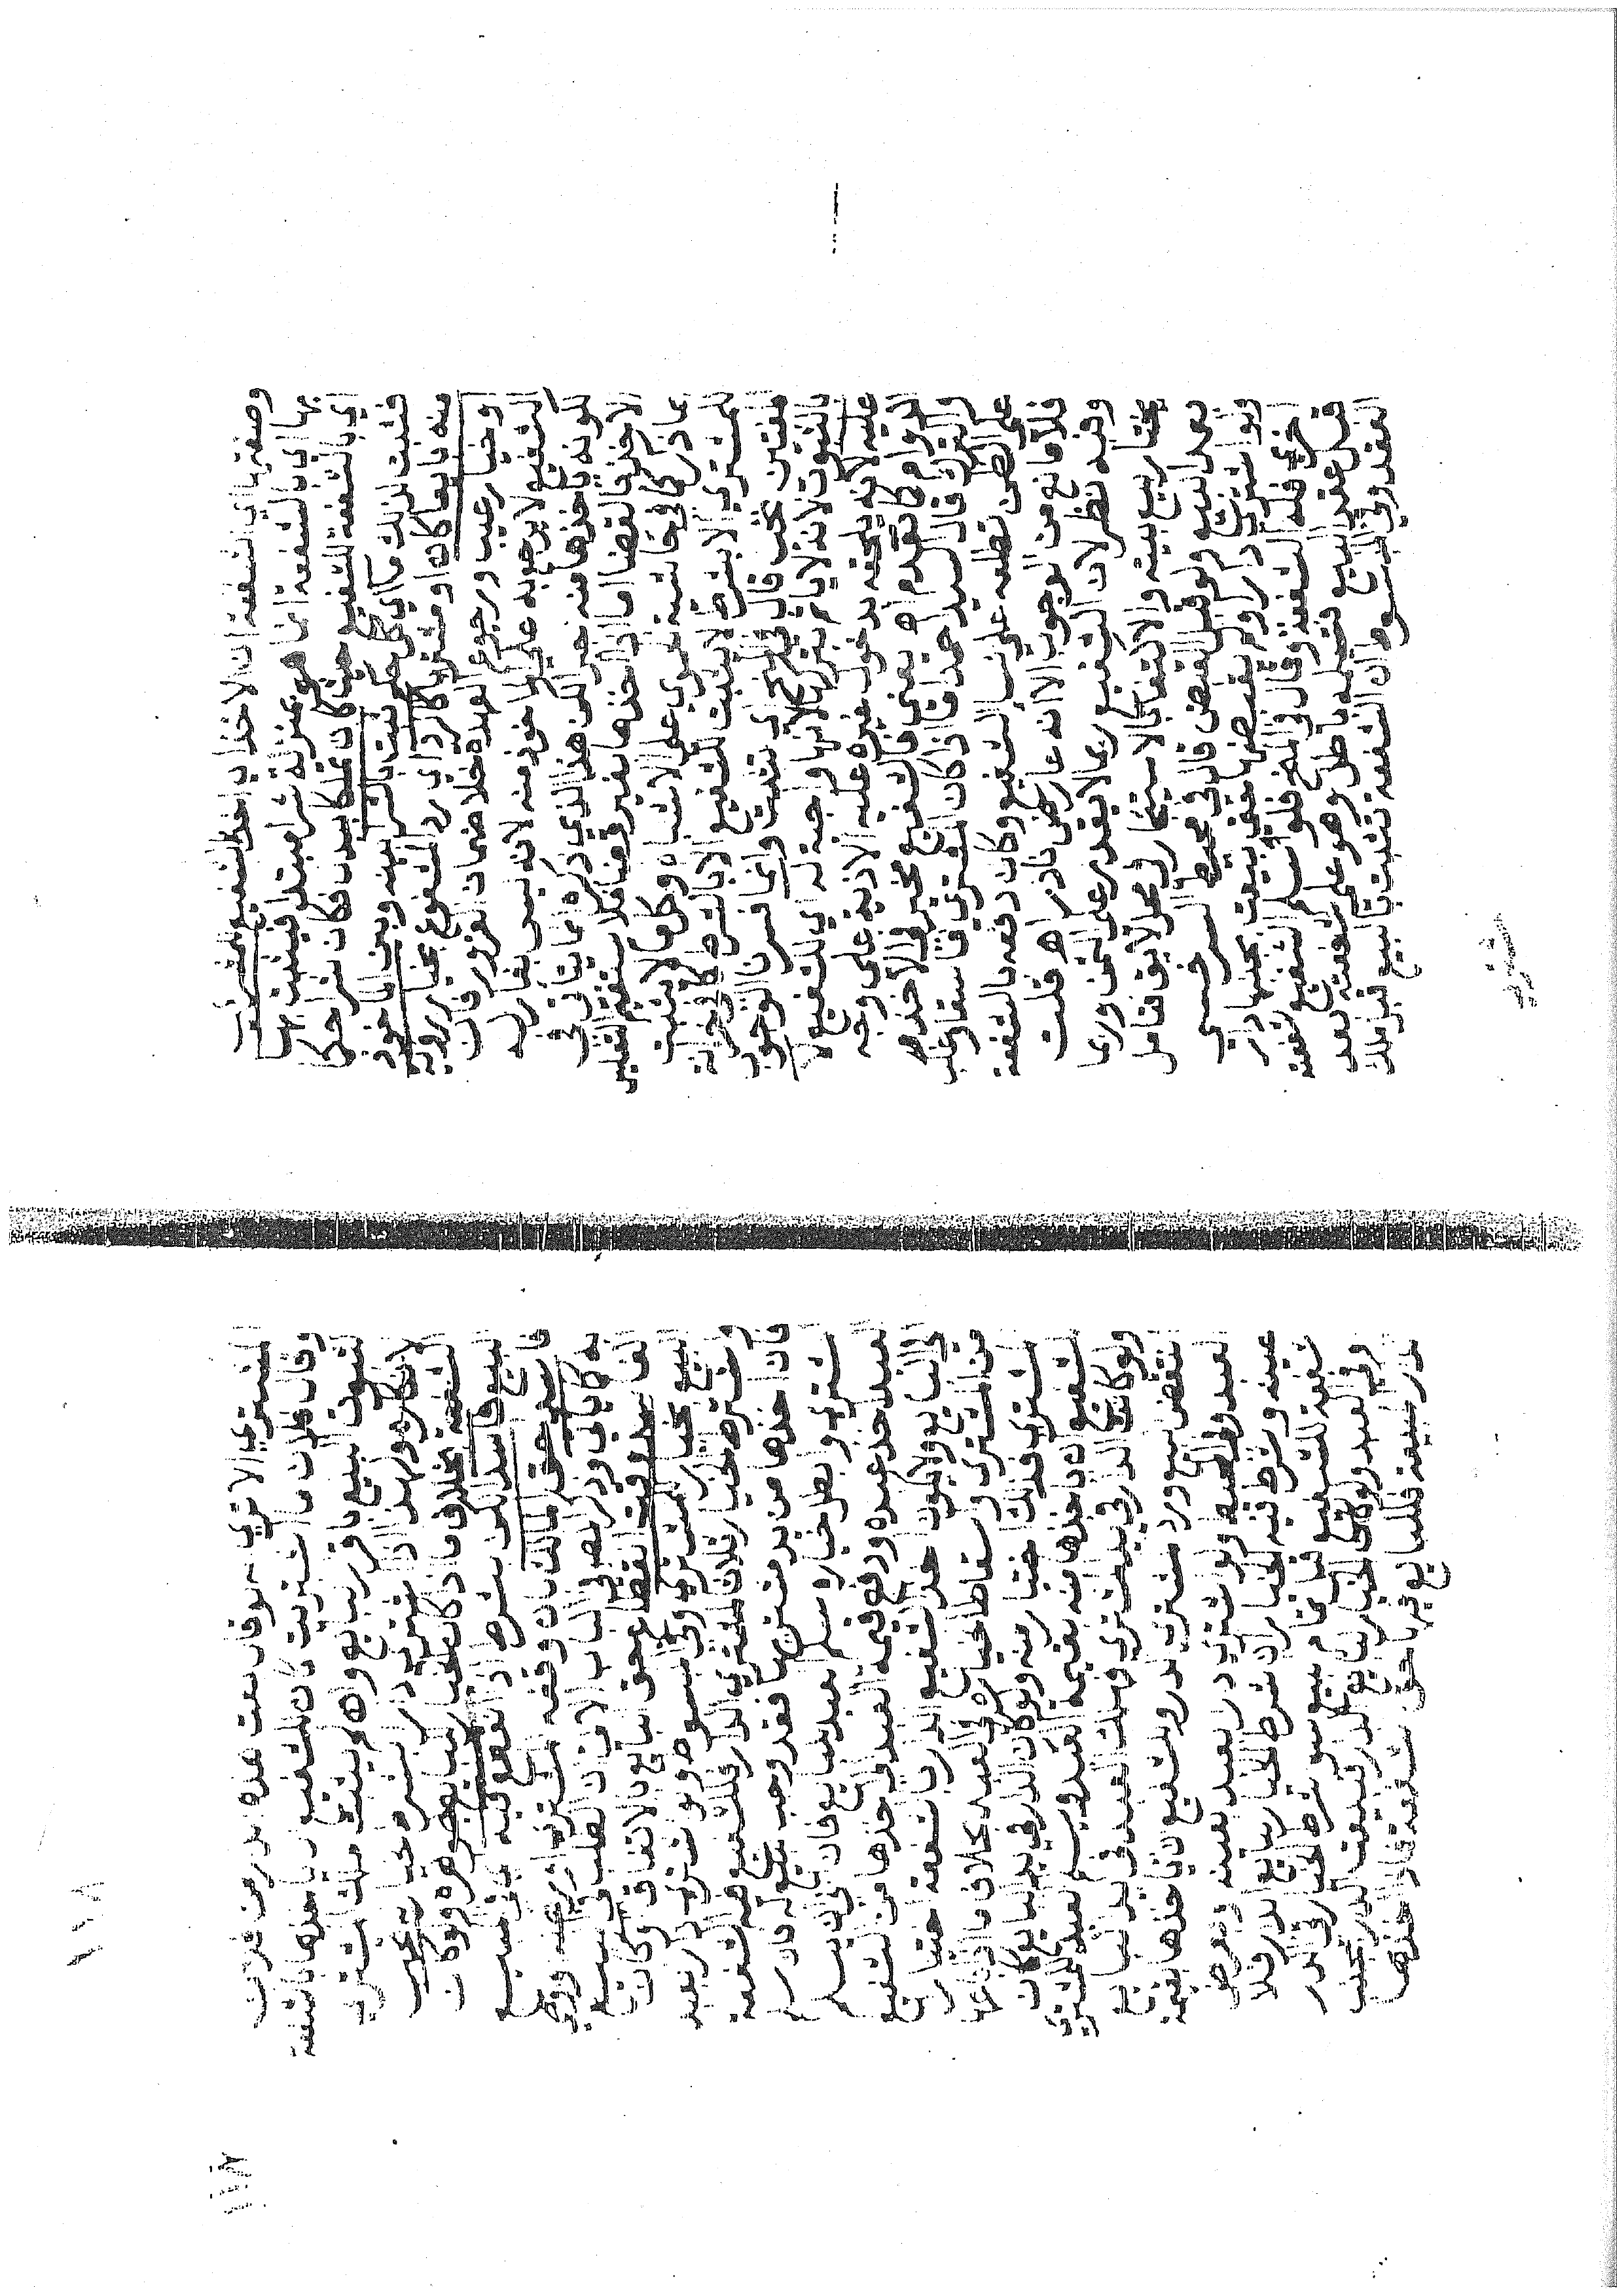 وصفتها اي الشفعة ان الاخذ اي اخذ الشفيع
بها اي بالشفعة انما هو بمنزلة شرا مبتدا فيثبت بها
اي بالشفعة للشفيع كان تملكا ببدل فكان شرا حكما
فثبت لذلك ما اي كل حكم ثبت بالشرا بينه وبين الماخوذ
منه بايعا كان او مشتريا كالرد اي رد المشفوع بخيار روية
وخيار عيب ورجوع العهدة خلا ضمان الغرور فان
الشفيع لا يرجع به على الماخوذ منه لانه ليس بغار له
لكونه ياخذها منه جبرا لكن هذا الذي ذكره انما يتاتى في
الاخذ بالقضا اما اذا اخذها بغير قضا فلا يستقيم التعليل
بما ذكر كما في حاشية الحموي على الاشباه وكل ما لا يثبت
للمشتري الا بشرط لا يثبت للشفيع الا بالشرط كما في خزانة
المفتين تجب قال في المنح اي تثبت وانما فسرنا الوجوب
بالثبوت لانه لا ياثم بتركها لانها واجبة له اي للشفيع لا
عليه لانه يلحقه بدخول غيره عليه الاذية على وجه
الدوام كما تقدم اه يعني فالشفيع مخير في الاخذ
والترك قال السيد احمد فاذا كان المشتري فاسقا وغلب
على الظن تطلعه على نسا الشفيع وكان دفعه بالشفعة
فلا مانع من الوجوب الا انه عارض نادر اه قلت
وفيه نظر لان الشفيع ربما لا يقدر على الثمن وربما
يختار بيع بيته والانتقال لا سيما في محل لايق فتامل
بعد البيع ولو قبل القبض قال في محيط السرخسي
ولو اشترى دارا ولم يقبضها حتى بيعت بجنبها دار
اخرى فله الشفعة وقال في المنح فلو سلم الشفيع شفعته
قبل عقد البيع فتسليمه باطل وهو على شفعته بعد
العقد وفي المبسوط ان الشفعة تثبت بالبيع قبل ملك
المشتري الا ترى انه لو قال بعت هذه الدار من فلان
وقال فلان ما اشتريت كان للشفيع ان ياخذها بالشفعة
لثبوت البيع باقرار البايع وان لم يثبت ملك المشتري
لانكاره ولهذا اذا اشترى دارا بشرط خيار تجب
الشفعة بخلاف ما اذا كان الخيار للبايع جوهرة ولو كان
البيع فاسدا لكن بشرط انقطع فيه
حق المالك بان وقفه المشتري
به كما ياتي في الباب الاتي ان الطلب في البيع
الفاسد وقت انقطاع حق البايع بالاتفاق وكان
البيع بخيار للمشتري وفي المبسوط ولو اشترى دارا بعبد
واشترط الخيار ثلاثا لمشتري الدار فللشفيع فيها الشفعة
فان اخذها من يد مشتريها فقد وجب البيع له فان سلم
المشتري وابطل خياره سلم العبد للبايع وان ابى ان يسلم
العبد اخذ عبده ودفع قيمة العبد الذي اخذها من الشفيع
الى البايع ولا يكون اخذ الشفيع الدار بالشفعة اختيارا
من المشتري واسقاطا لخياره في العبد بخلاف ما اذا باعها
المشتري فذلك اختيار منه ولو كان الدار في يد البايع كان
للشفيع ان ياخذها منه بقيمة العبد ويسلم العبد للمشتري
ولو كانت الدار في يد المشتري فهلك العبد في يد البايع
انتقض البيع ورد المشتري الدار وللشفيع ان ياخذها بقيمة
العبد ولو اشترى دارا بعبد بعينه
عينه وشرط فيه الخيار ان شرط الخيار لبايع الدار فلا
شفعة للشفيع قبل تمام البيع شرط الخيار في الدار
وفي العبد ولو كان الخيار لبايع الدار فبيعت دار بجنب
الدار المبيعة فللبايع فيها حق الشفعة فاذا اخذها